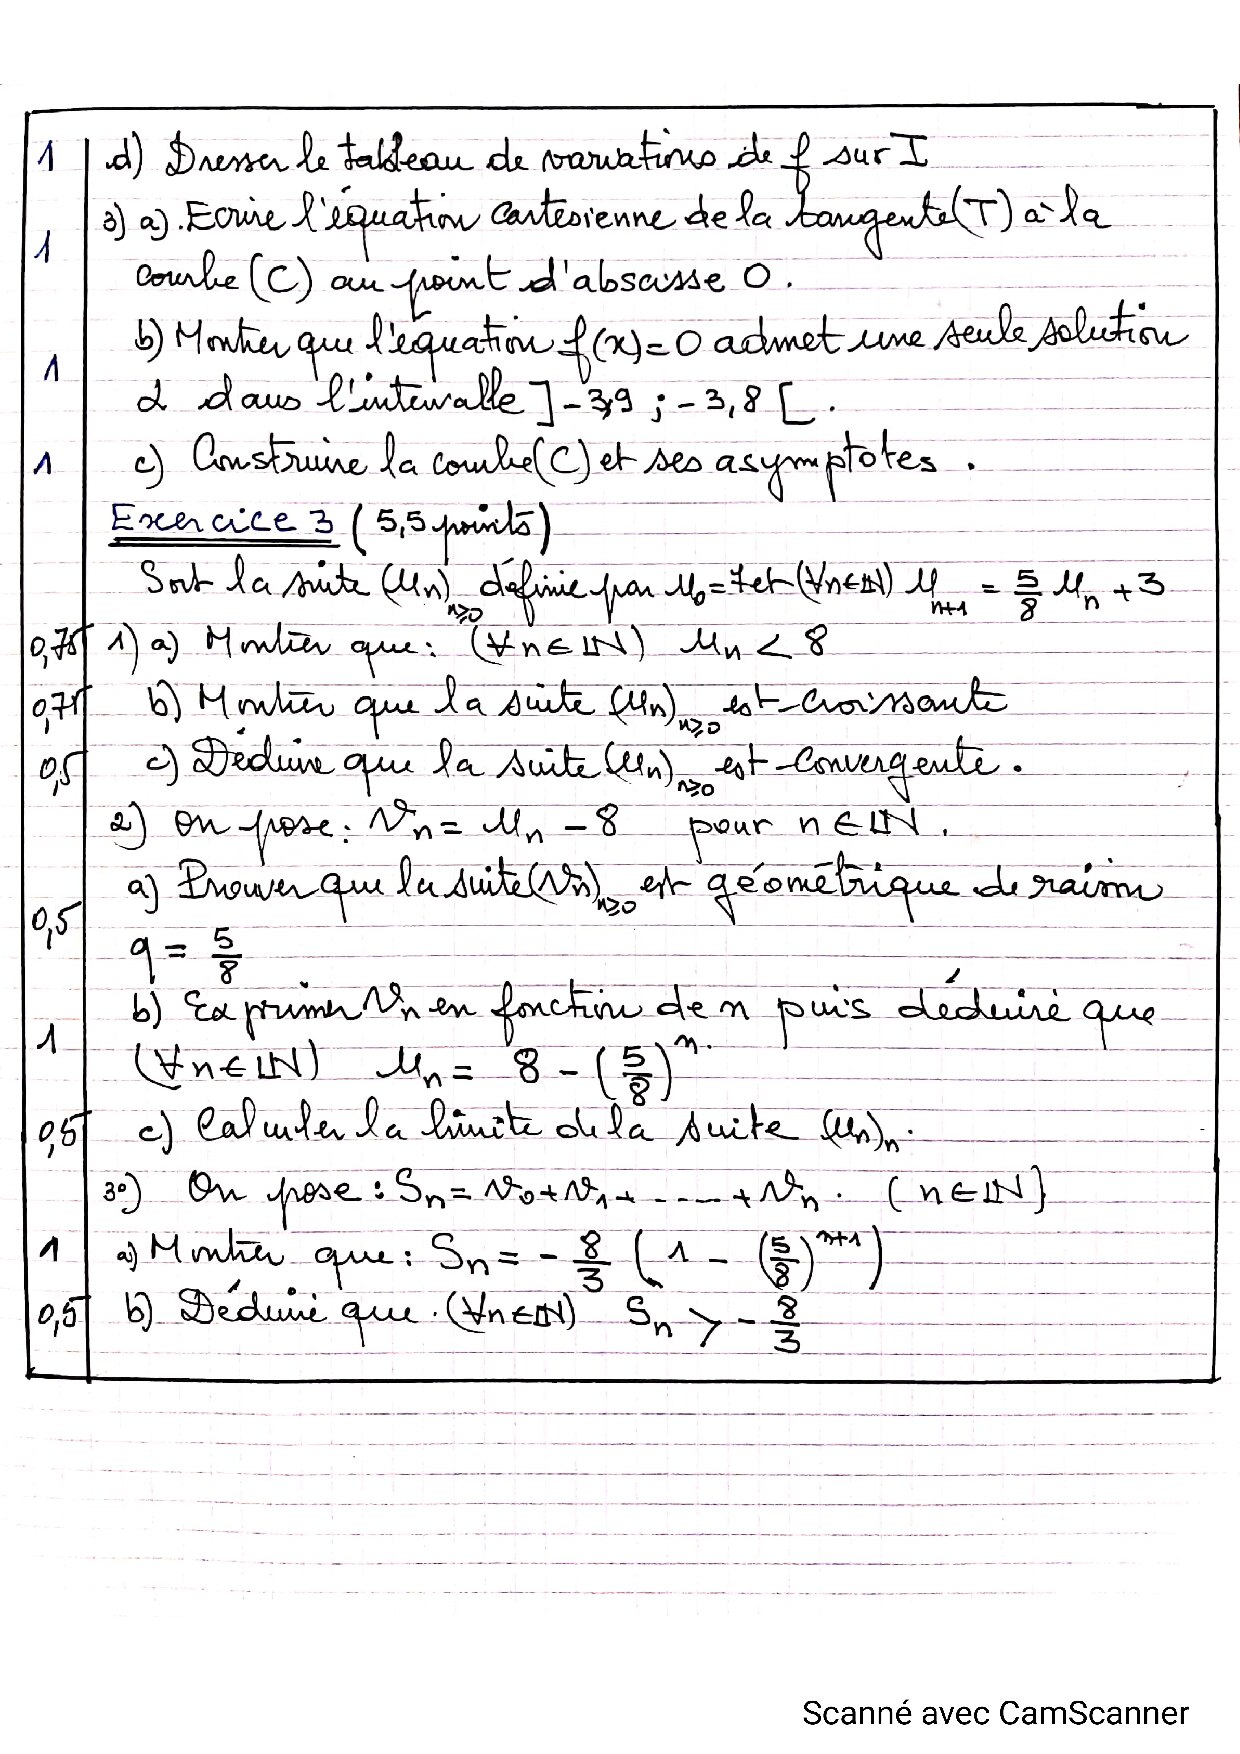 1 d) Dresser le tableau de variations de f sur I
3) a). Ecrire l'équation cartesienne de la tangente (T) à la
1
courbe (C) au point d'abscisse 0.
b) Montrer que l'équation f(x) = 0 admet une seule solution
1
α dans l'intervalle ]-3,9 ; -3,8[.
1 c) Construire la courbe (C) et ses asymptotes .
Exercice 3 (5,5 points)
Soit la suite (Un)n≥0 définie par U0 = 7 et (∀n∈IN) Un+1 = 5/8 Un + 3
0,75 1) a) Montrer que : (∀n∈IN) Un < 8
0,75 b) Montrer que la suite (Un)n≥0 est croissante
0,5 c) Déduire que la suite (Un)n≥0 est convergente.
2) On pose : Vn = Un - 8 pour n∈IN.
a) Prouver que la suite (Vn)n≥0 est géométrique de raison
0,5
q = 5/8
b) Exprimer Vn en fonction de n puis déduire que
1
(∀n∈IN) Un = 8 - (5/8)^n.
0,5 c) Calculer la limite de la suite (Un)n.
3°) On pose : Sn = V0 + V1 + ..... + Vn. (n∈IN)
1 a) Montrer que : Sn = - 8/3 (1 - (5/8)^n+1)
0,5 b) Déduire que . (∀n∈IN) Sn > - 8/3
Scanné avec CamScanner